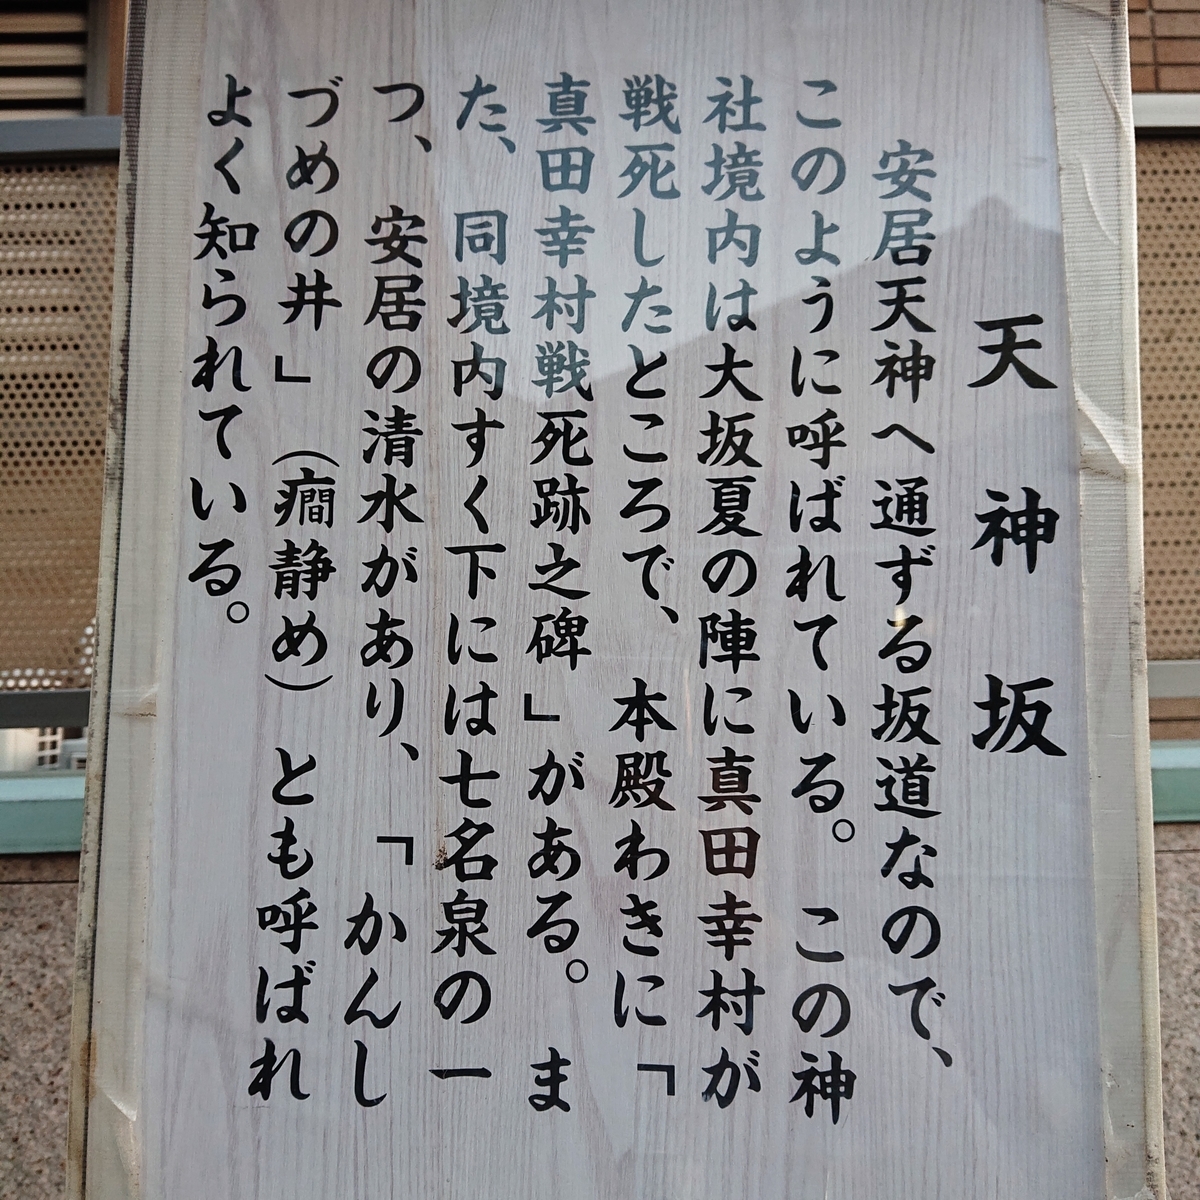 天神坂
安居天神へ通ずる坂道なので、
このように呼ばれている。この神
社境内は大坂夏の陣に真田幸村が
戦死したところで、本殿わきに「
真田幸村戦死跡之碑」がある。ま
た、同境内すく下には七名泉の一
つ、安居の清水があり、「かんし
づめの井」（癇静め）とも呼ばれ
よく知られている。